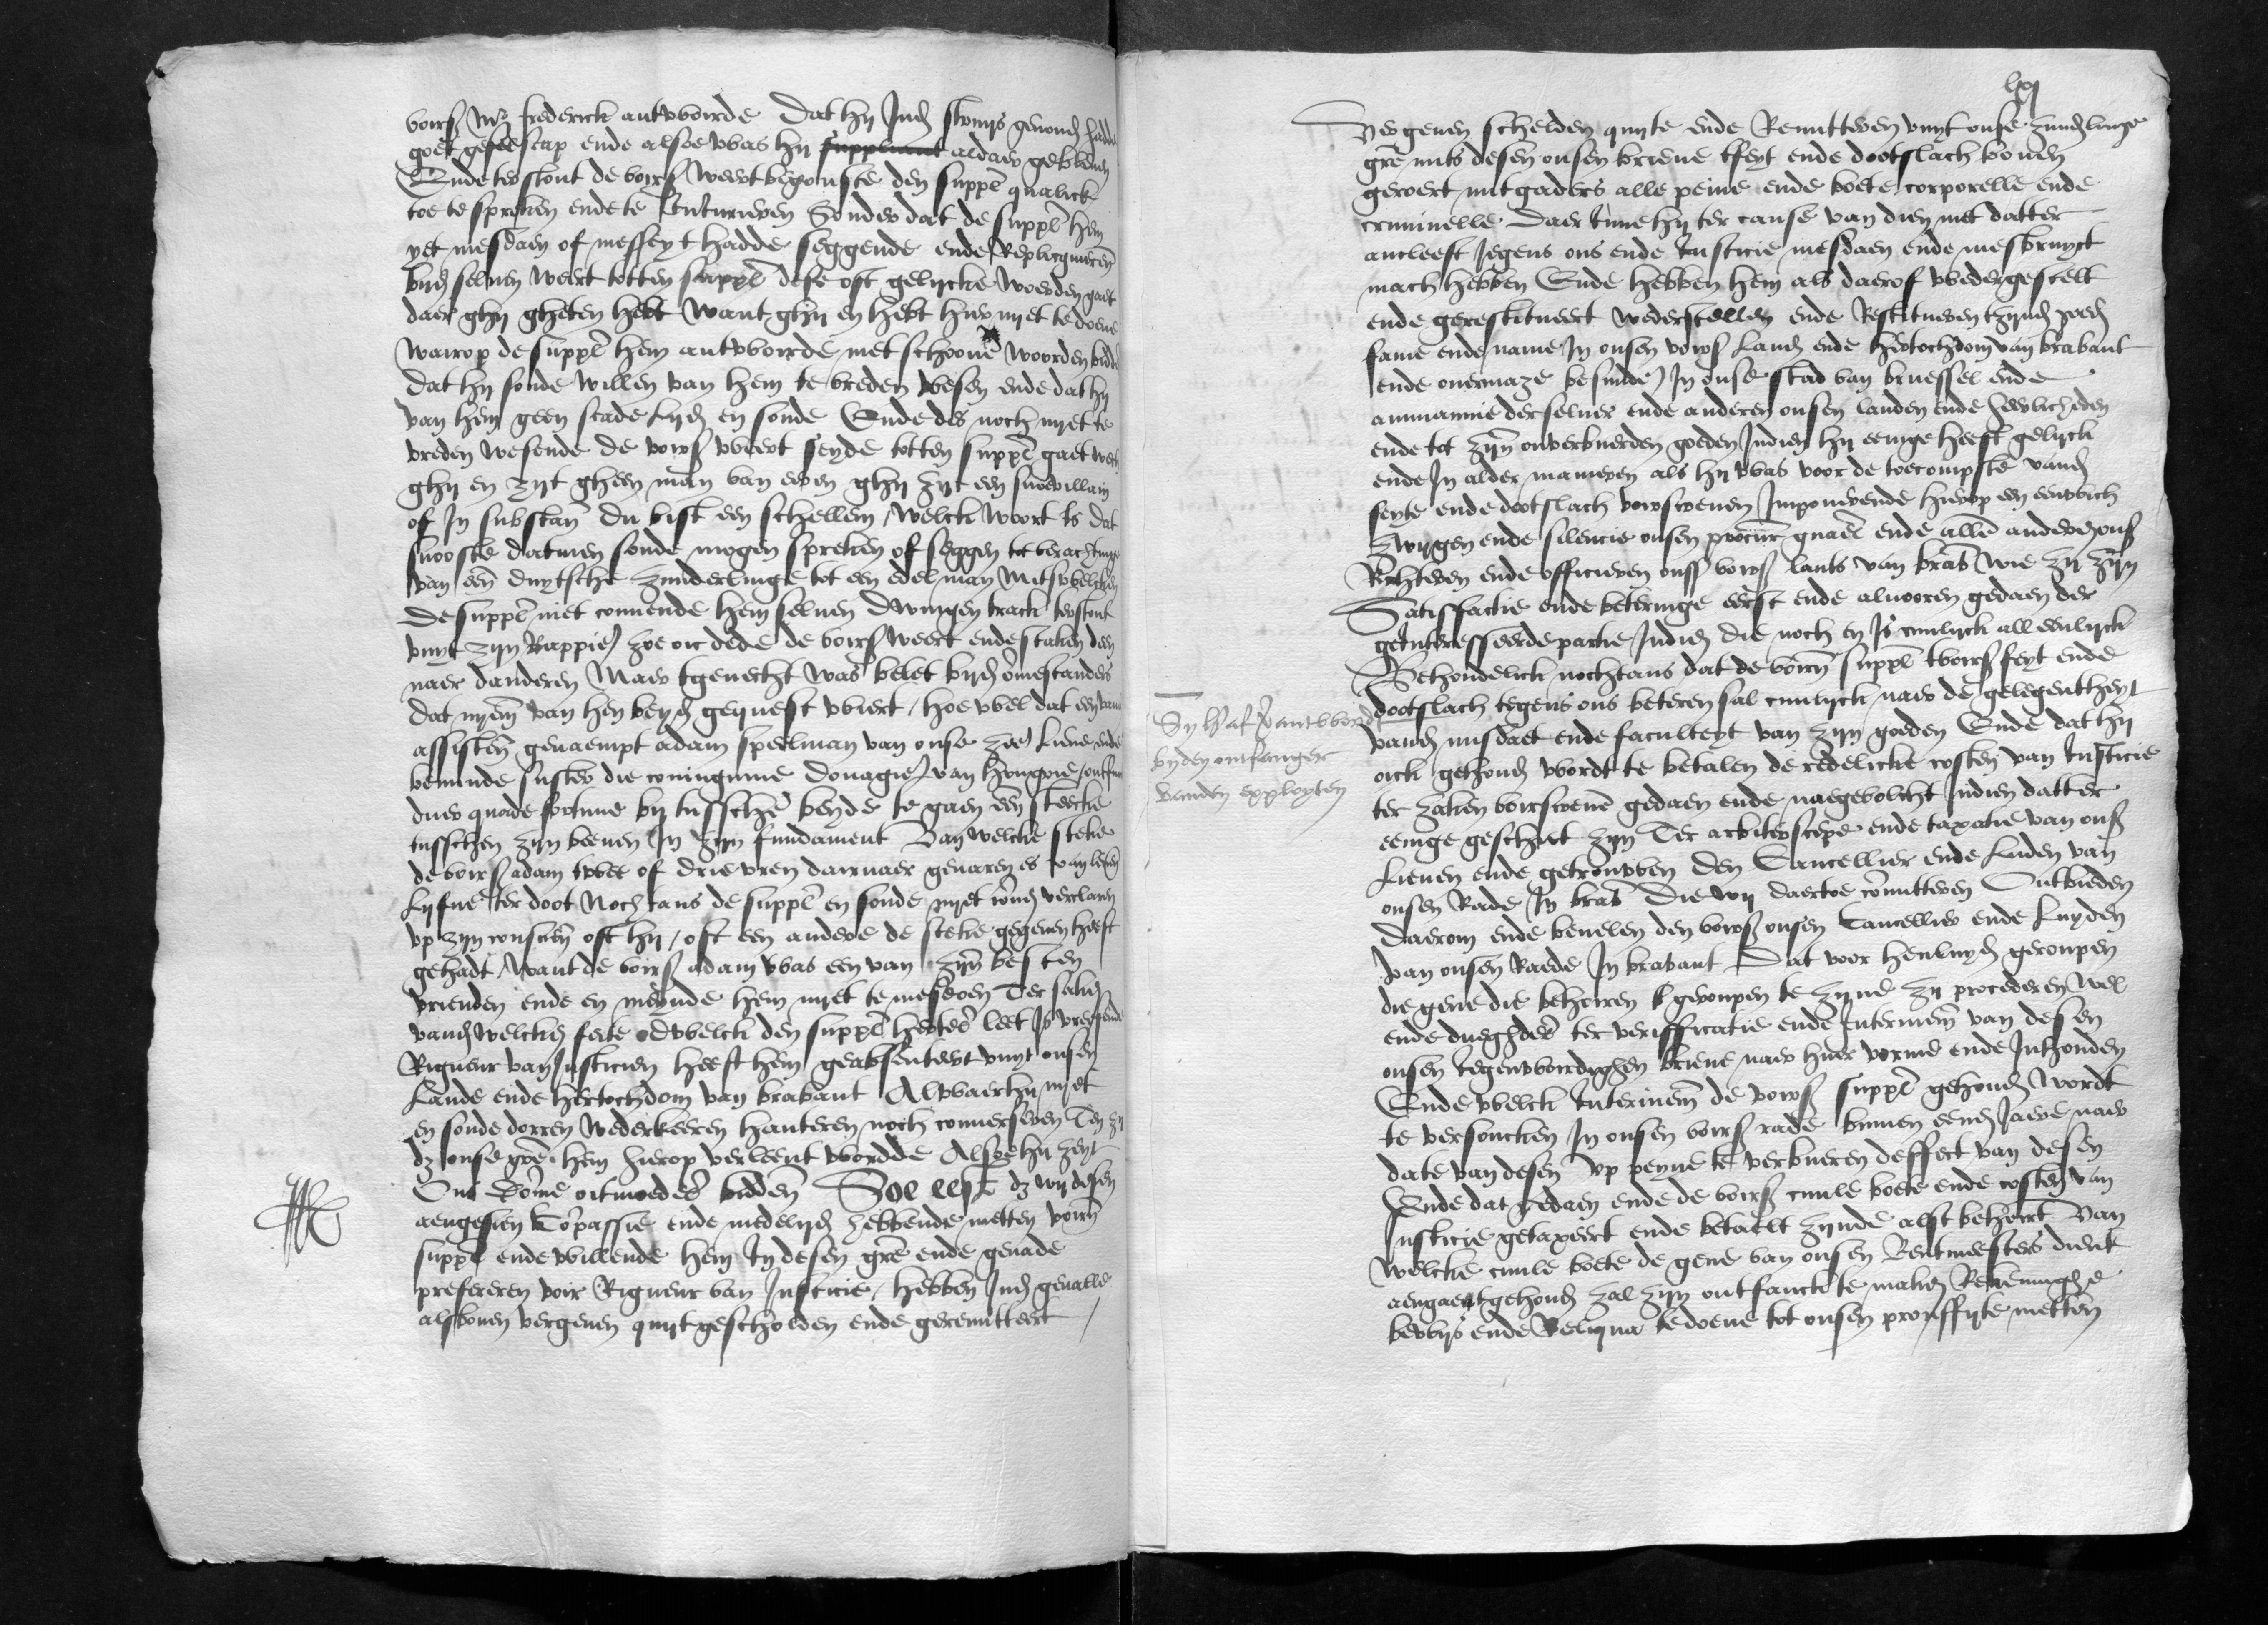 voirs mr frederick antwoirde Dat hij Jnd stonijs gevond hadde
goet geselscap ende alsoe was hij suppliant aldaer gebleven
Ende terstont de voirs weert begonste den suppl qualick
toe te spreken ende te Jniurieren Sonder dat de suppl hem
yet mesdaen of messeyt hadde seggende ende Replicquerende
bijd selven weert totten suppl dese oft gelycke woerden gaet
daer ghij gheten hebt want ghij en hebt hier nyet te doene
wairop de suppl hem antwoirde met schoone woorden biddende
dat hij soude willen van hem te vreden wesen ende dat hij
van hem geen scade lijd en soude Ende des noch nyet te
vreden wesende de voirs weert seyde totten suppl gaet wech
ghij en zyt gheen man van eeren ghij zyt een snoevillain
of Jn substan Du bist een schellem / welck woort Is dat
snooste datmen soude mogen spreken of seggen tot verachtinge
van een duytsche zunderlinge tot een edelman Mits welcken
de suppl niet connende hem selven dwingen track terstont
vuyt zyn Rappier zoe oic dede de voirs weert ende staken deen
naer danderen Maer tgevecht was belet bijd omestanders
dat nyemt van hen beyd gequest wiert / hoe wel dat een vand
assisten genaempt adam speelman van onse zeer lieve ende
beminde suster die coninginne douagier van hongrie / ontfinc
duer quade fortune bij tusschen beyde te gaen een steecke
tusschen zyn beenen Jn zyn fundament Van welcke steke
de voirs adam twee of drie uren dairnaer gevaren es van leven
lijfve ter doot Nochtans de suppl en soude nyet connen verclaren
up zyn conscien oft hij / oft een andere de steke gegeven heeft
gehadt / want de voirs adam was een van zyn besten
vrienden ende en meynde hem nyet te mesdoen Ter saken
vand welcken feite Dwelck den suppl hertel leet Is vresende
Rigueur van Justicien heeft hem geabsenteert vuyt onsen
Lande ende hertochdom van brabant Alwaer hij niet
en soude dorren wederkeeren hanteren noch converseren Ten zy
dz onse gre hem hierop verleent wordde Alsoe hij zeyt
Ons Dome oitmoedel bidden Soe eest dz wij desen
aengesien Compassie ende medelijd hebbende metten voirn
suppl ende willende hem Jn desen gre ende genade
prefereren voir Rigueur van Justicie / hebben Jnd gevalle
alsboven vergeven quytgescholden ende geremitteert
lxj
Vergeven schelden quyte ende Remitteren vuyt onse zunderlinge
gre mits desen onsen brieve tfeyt ende dootslach boven
geroert mitgaders alle peine ende boete corporelle ende
criminelle Daer Jnne hij ter cause van dien met datter
ancleeft Jegens ons ende Justicie mesdaen ende mesbruyct
mach hebben Ende hebben hem als daerof wedergestelt
ende gerestitueert wederstellen ende Restitueren tzynd goed
fame ende name Jn onsen voirs Land ende hertochdom van brabant
ende overmaze besunder Jn onse stad van bruessel ende
ammannie derselver ende anderen onsen landen ende heerlicheden
ende tot zyn onverbuerden goeden Jndien hij eenige heeft gelyck
ende Jn alder manieren als hij was voor de toecompste vand
feyte ende dootslach voirscreven Jmponerende hierop een eewich
zwygen ende silencie onsen procur gnael ende allen anderen ons
Richteren ende officieren onss voirs lants van brab wie zy zyn
Satisfactie ende beteringe eerst ende alvooren gedaen der
geinteresseerde partie Jndien die noch en Is civilyck alleenlyck
Behoudelick nochtans dat de voirn suppl tvoirs feyt ende
dootslach tegens ons beteren sal civilyck naer de gelegentheyt
vand misdaet ende faculteyt van zyn goeden Ende dat hij
oick gehoud wordt te betalen de redelicke costen van Justicie
ter zaken voirscreven gedaen ende naegevolcht Jndien datter
eenige geschiet zyn Ter arbiterscepe ende taxatie van ons
Lieven ende getrouwen den Cancellier ende Luden van
onsen Rade Jn brab Die wij daertoe comitteren Ontbieden
daerom ende bevelen den voirs onsen Cancellier ende Luyden
van onsen Raede Jn brabant Dat voor henluyd geroupen
die gene die behoiren geroupen te zyne zy procederen wel
ende duechdel ter verifficatie ende Jnterinem van desen
onsen tegenwordighen brieve naer huer vorme ende Jnhouden
Ende welck Jnterinem de voirs suppl gehoud wordt
te versoucken Jn onsen voirs rade binnen eend Jaere naer
date van desen up peyne te verbueren deffect van desen
Ende dat gedaen ende de voirs civile boete ende costen van
Justicie getaxeert ende betaelt zynde alst behoirt Van
welcke civile boete de gene van onsen Rentmeesters dient
aengaen gehoud zal zyn ontfanck te maken Rekeninghe
bewijs ende Reliqua te doene tot onsen prouffyte metten
Sy hyaf verantwoordt
byden ontfanger
vanden exployten